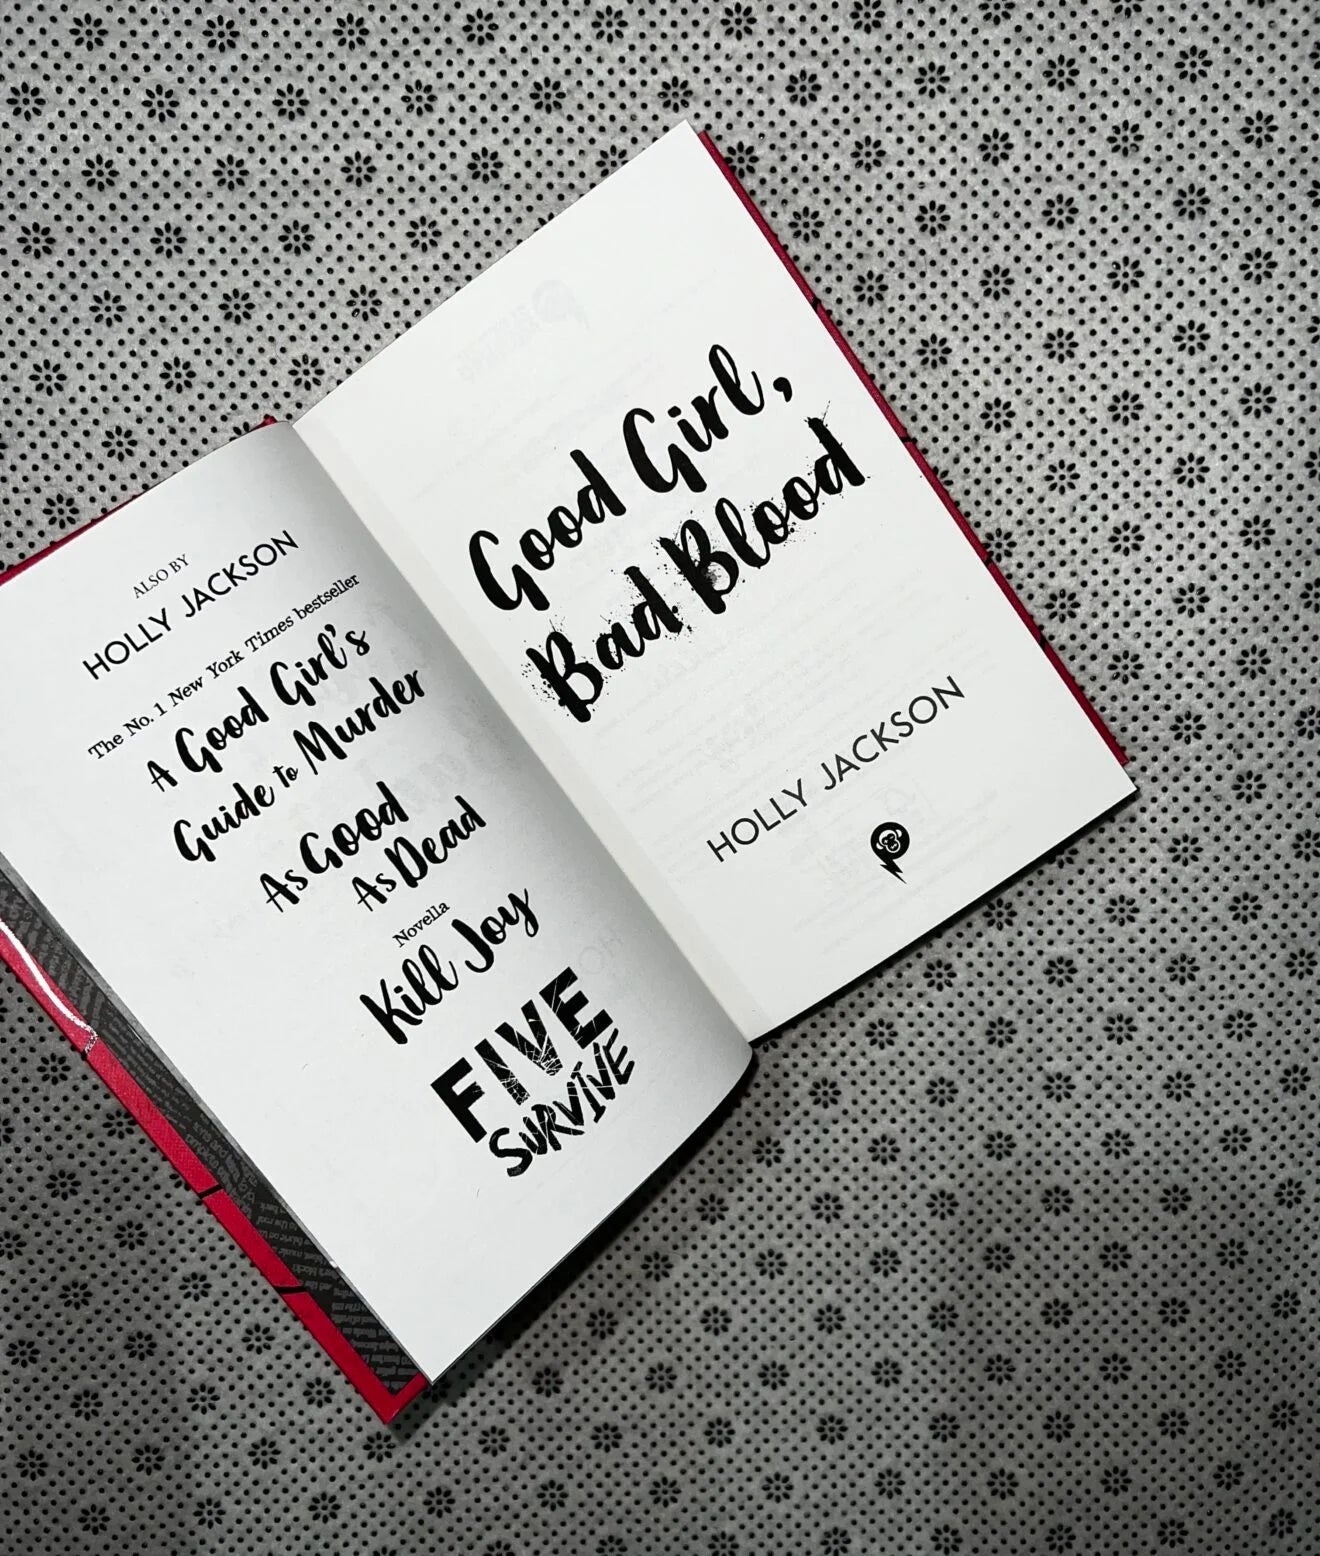 ALSO BY
HOLLY JACKSON
The No. 1 New York Times bestseller
A Good Girl's
Guide to Murder
As Good
As Dead
Novella
Kill Joy
FIVE
SURVIVE
Good Girl,
Bad Blood
HOLLY JACKSON